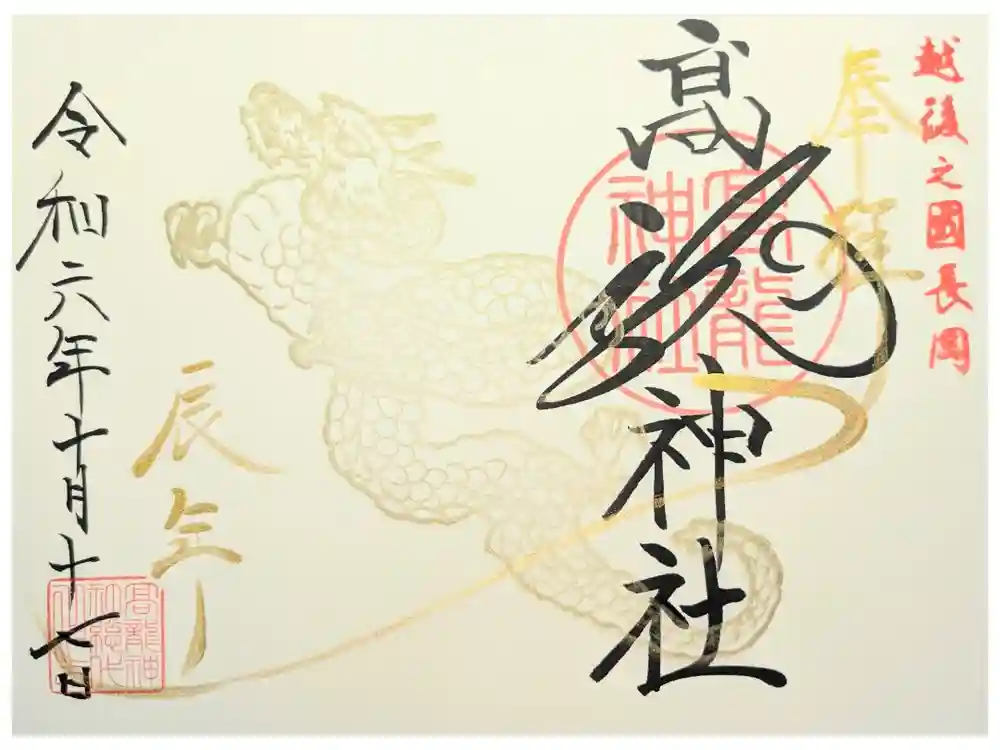 越後之國長岡
奉拝
髙龍神社
高龍
神社
辰年
令和六年十月十七日
高龍神
社総代